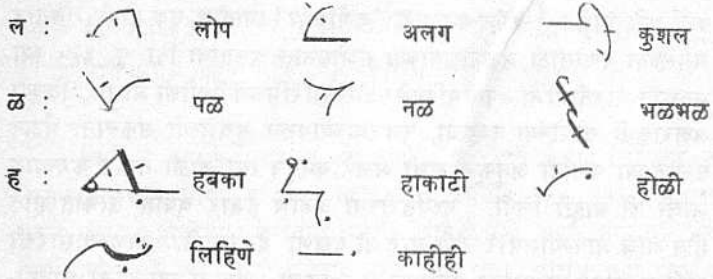 ल : लोप अलग कुशल
ळ : पळ नळ भळभळ
ह हबका हाकाटी होळी
लिहिणे काहीही